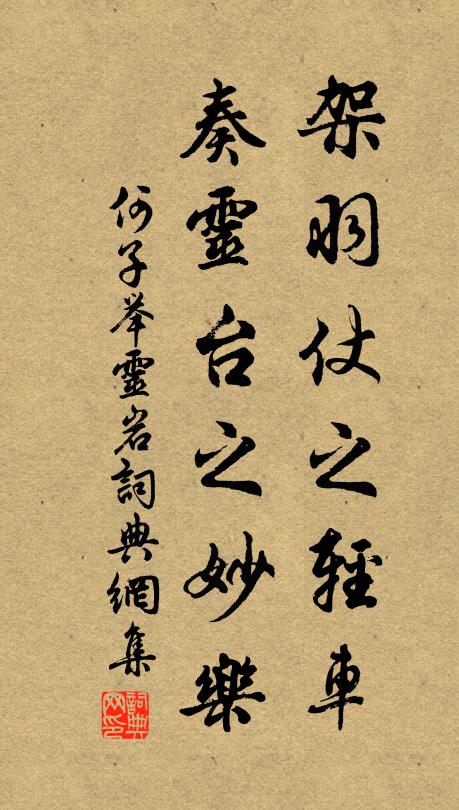 架羽仗之輕車
奏靈台之妙樂
何子举靈岩詞典網集
詞典网印